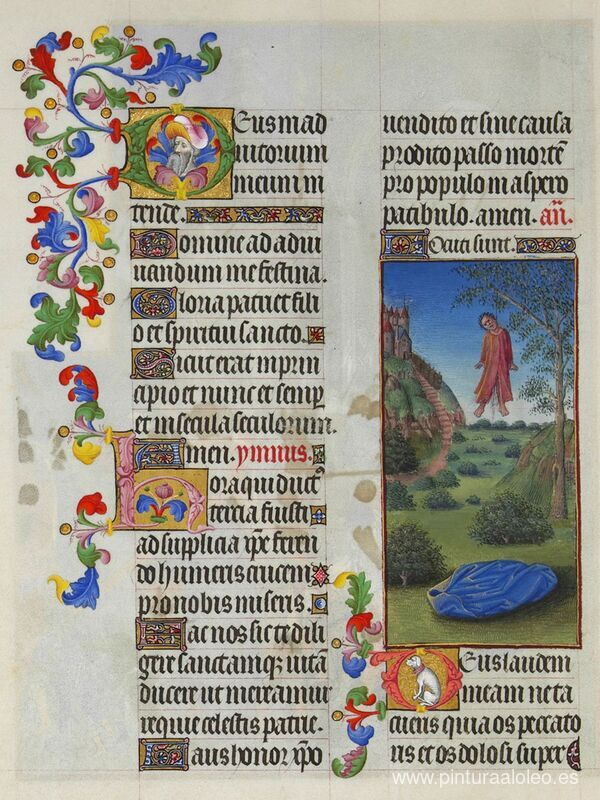 Deus in ad
iutorium
meum in
tende.
Domine ad adiu
uandum me festina.
Gloria patri et fili
o et spiritui sancto.
Sicut erat in prin
cipio et nunc et semp
et in secula seculorum.
Amen. ymnus.
Hora qui duct
tercia fuisti
ad supplicia xpe feren
do humeris crucem
pro nobis miseris.
Fac nos sic te dili
gere sanctamq; uitā
ducere ut mereamur
requie celestis patrie.
Laus honor xpo
uendito et sine causa
prodito passo mortē
pro populo in aspero
patibulo. amen. añ.
Locuti sunt.
Deus laudem
meam ne ta
cueris quia os peccato
ris et os dolosi super
www.pinturaaloleo.es